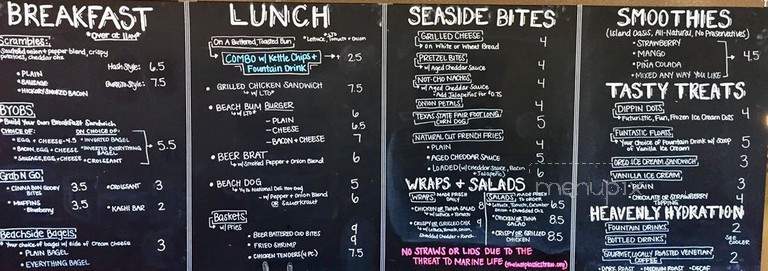 BREAKFAST
*Over at 11AM*
Scrambles:
pepper blend, crispy
potatoes, cheddar
- PLAIN
- SAUSAGE
- HICKORY SMOKED BACON
Hash Style: 6.5
Burrito Style: 7.5
BYOBS
Build Your Own Breakfast Sandwich
CHOICE OF:
ON CHOICE OF:
• EGG + CHEESE - 4.5
• INVERTED BAGEL
• BACON, EGG + CHEESE
• INVERTED EVERYTHING BAGEL
• SAUSAGE, EGG + CHEESE
• CROISSANT
5.5
Grab N Go
• CINNABON GOOEY BITES 3.5
• CROISSANT 3
• MUFFINS 3.5
- Blueberry
• KASHI BAR 2
BeachSide Bagels
*Your choice of bagel w/ side of Cream Cheese 3
- PLAIN BAGEL
- EVERYTHING BAGEL
LUNCH
On A Buttered, Toasted Bun
*LTO
*Lettuce, Tomato + Onion
COMBO w/ Kettle Chips + Fountain Drink 2.5
• GRILLED CHICKEN SANDWICH 7.5
w/ LTO*
• BEACH BUM BURGER
w/ LTO*
- PLAIN 6
- CHEESE 6.5
- BACON + CHEESE 7
• BEER BRAT 6
w/ Smothered Pepper + Onion Blend
• BEACH DOG 5
*¼ lb National Deli Hot Dog
- w/ Pepper + Onion Blend or Sauerkraut 6
Baskets
w/ Fries
• BEER BATTERED COD BITES 9
• FRIED SHRIMP 9
• CHICKEN TENDERS (4 PC.) 7.5
SEASIDE BITES
GRILLED CHEESE 4
- on White or Wheat Bread
PRETZEL BITES 4
- w/ Aged Cheddar Sauce
NOT-CHO NACHOS 4
- w/ Aged Cheddar Sauce
- Add Jalapeños for $0.75
ONION PETALS 4
TEXAS STATE FAIR FOOT LONG CORN DOG 5
NATURAL CUT FRENCH FRIES
- PLAIN 4
- AGED CHEDDAR SAUCE 5
- LOADED (w/ Cheddar Sauce, Bacon + Jalapeño) 6
WRAPS + SALADS
WRAPS: MADE FRESH DAILY
SALADS: MADE FRESH TO ORDER
• CHICKEN OR TUNA SALAD
w/ Lettuce + Tomato
• CRISPY OR GRILLED CHK 9
- w/ Lettuce, Tomato, Onion,
Shredded Cheddar + Ranch
- Lettuce, Tomato, Cucumber
Onion + Shredded Chz 6.5
• CHICKEN OR TUNA SALAD 8.5
• CRISPY OR GRILLED CHICKEN 8.5
NO STRAWS OR LIDS DUE TO THE
THREAT TO MARINE LIFE
SMOOTHIES
(Island Oasis, All-Natural, No Preservatives)
- STRAWBERRY
- MANGO
- PIÑA COLADA
- MIXED ANY WAY YOU LIKE
4.5
TASTY TREATS
DIPPIN DOTS 4
*Futuristic, Fun, Frozen Ice Cream Dots
FUNTASTIC FLOATS 5
*Your choice of Fountain Drink w/ Scoop
of Vanilla Ice Cream
OREO ICE CREAM SANDWICH 3
VANILLA ICE CREAM
- PLAIN 3
- CHOCOLATE OR STRAWBERRY TOPPING 4
HEAVENLY HYDRATION
FOUNTAIN DRINKS 2
BOTTLED DRINKS SEE COOLER
GOURMET, LOCALLY ROASTED VENETIAN COFFEE 2
- DARK ROAST - MEDIUM ROAST - DECAF
menupix